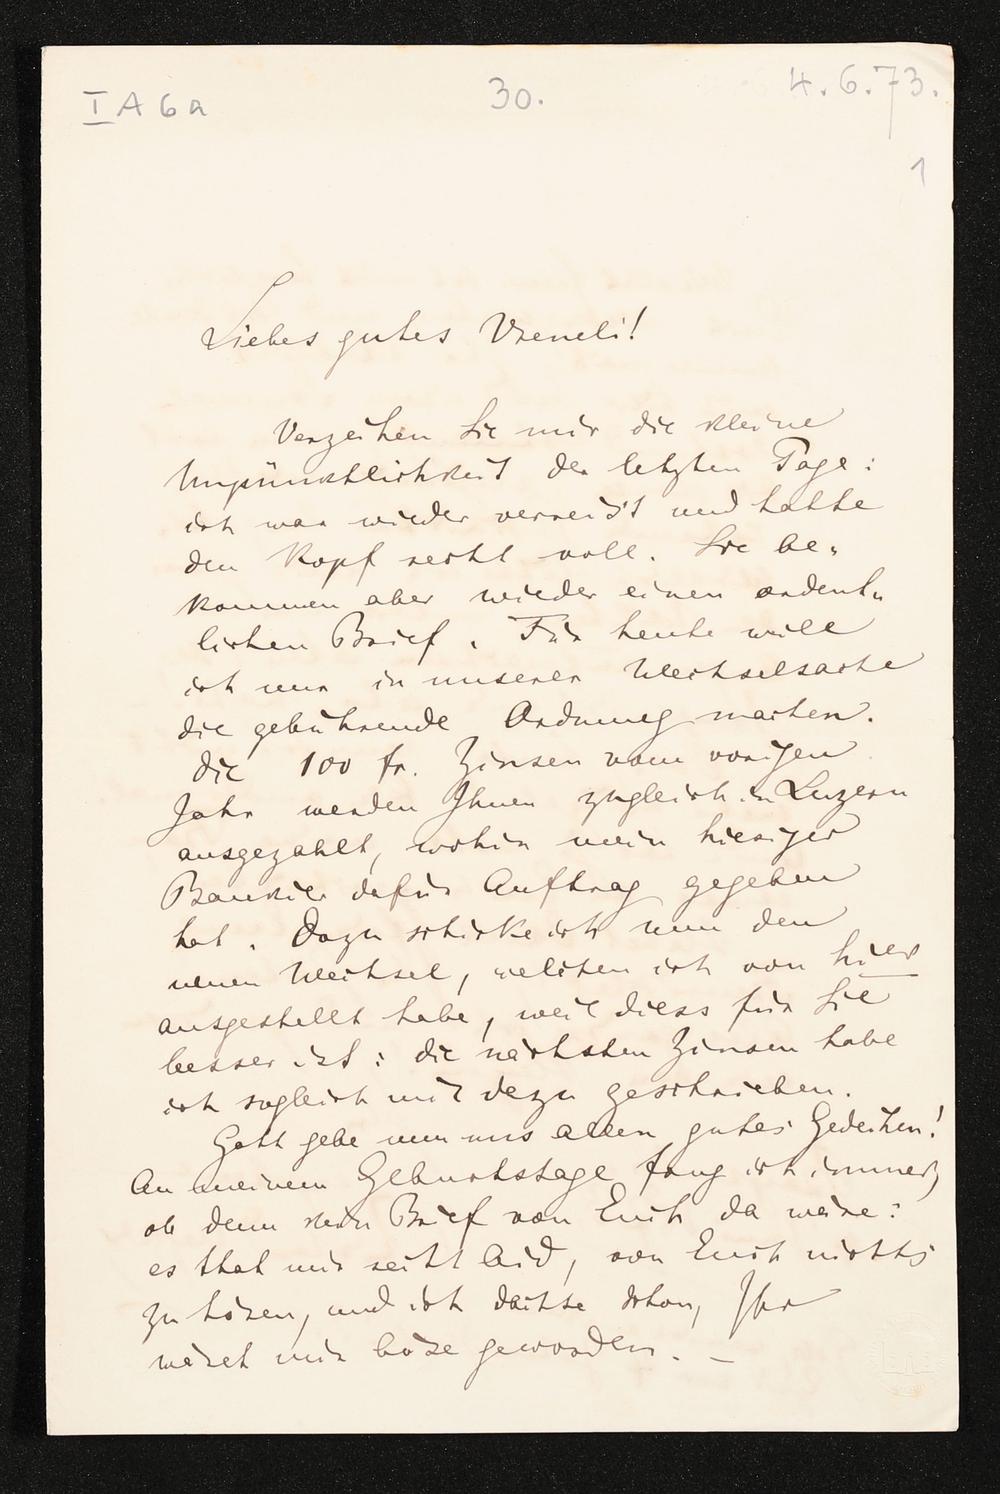 I A 6 a
30.
4.6.73.
1
Liebes gutes Vreneli!
Verzeihen Sie mir die kleine
Unpünktlichkeit der letzten Tage:
ich war wieder verreis't und hatte
den Kopf recht voll. Sie be-
kommen aber wieder einen ordent-
lichen Brief. Für heute will
ich nur in unserer Wechselsache
die gebührende Ordnung machen.
Die 100 fr. Zinsen vom vorigen
Jahr werden Ihnen zugleich in Luzern
ausgezahlt, wohin mein hiesiger
Bankier dafür Auftrag gegeben
hat. Dazu schicke ich nun den
neuen Wechsel, welchen ich von hier
ausgestellt habe, weil diess für Sie
besser ist: die nächsten Zinsen habe
ich sogleich mit dazu geschrieben.
Gott gebe nun uns allen gutes Gedeihen!
An meinem Geburtstage frug ich immer,
ob denn kein Brief von Euch da wäre:
es that mir recht leid, von Euch nichts
zu hören, und ich dachte schon, Ihr
wäret mir böse geworden. —